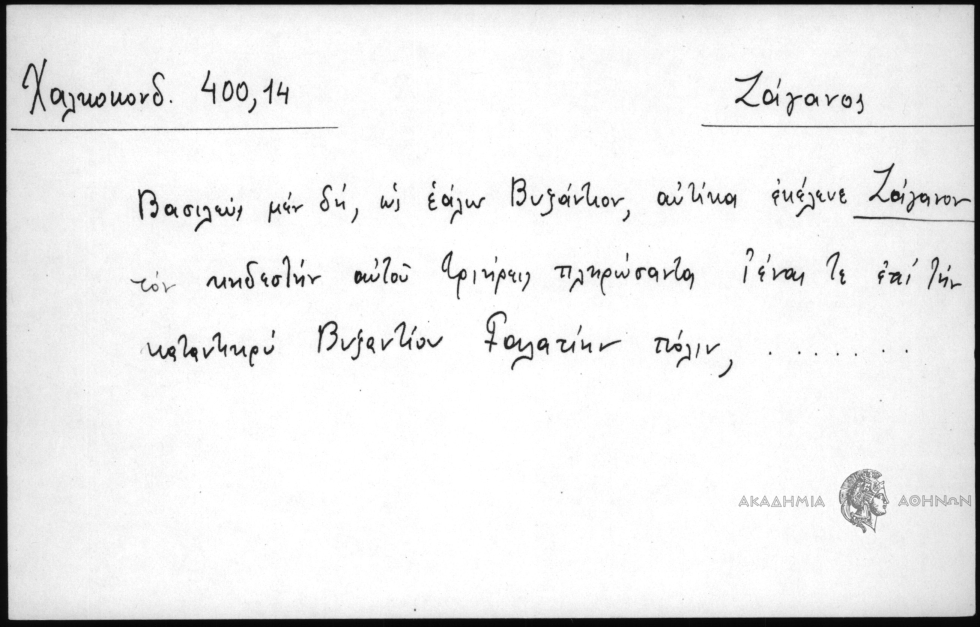 Χαλκοκονδ. 400,14
Ζάγανος
Βασιλεὺς μὲν δή, ὡς ἑάλω Βυζάντιον, αὐτίκα ἐκέλευε Ζάγανον
τὸν κηδεστὴν αὐτοῦ τριήρεις πληρώσαντα ἰέναι τε ἐπὶ τὴν
καταντικρὺ Βυζαντίου Γαλατίην πόλιν, . . . . . . .
ΑΚΑΔΗΜΙΑ ΑΘΗΝΩΝ